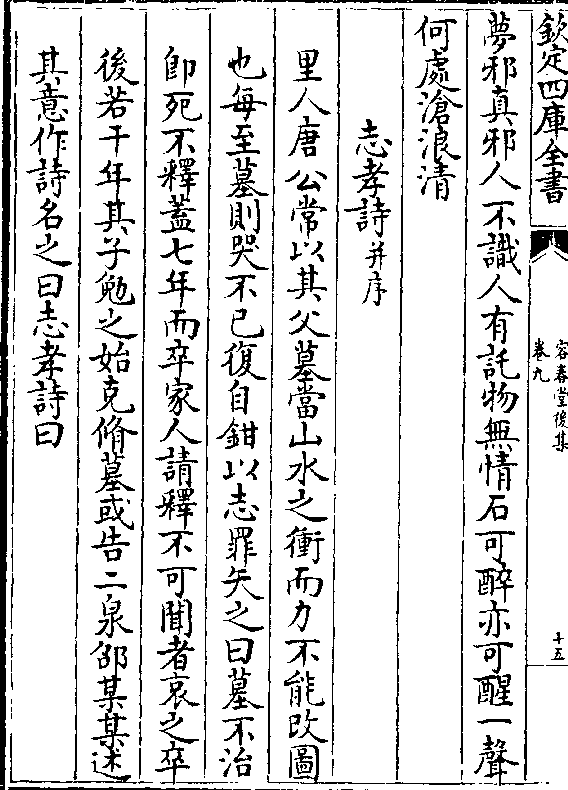 欽定四庫全書
容春堂後集
卷九
十五
夢邪真邪人不識人有託物無情石可醉亦可醒一聲
何處滄浪清
志孝詩并序
里人唐公常以其父墓當山水之衝而力不能改圖
也每至墓則哭不已復自鉗以志罪矢之曰墓不治
卽死不釋蓋七年而卒家人請釋不可聞者哀之卒
後若干年其子勉之始克脩墓或告二泉邵某某述
其意作詩名之曰志孝詩曰